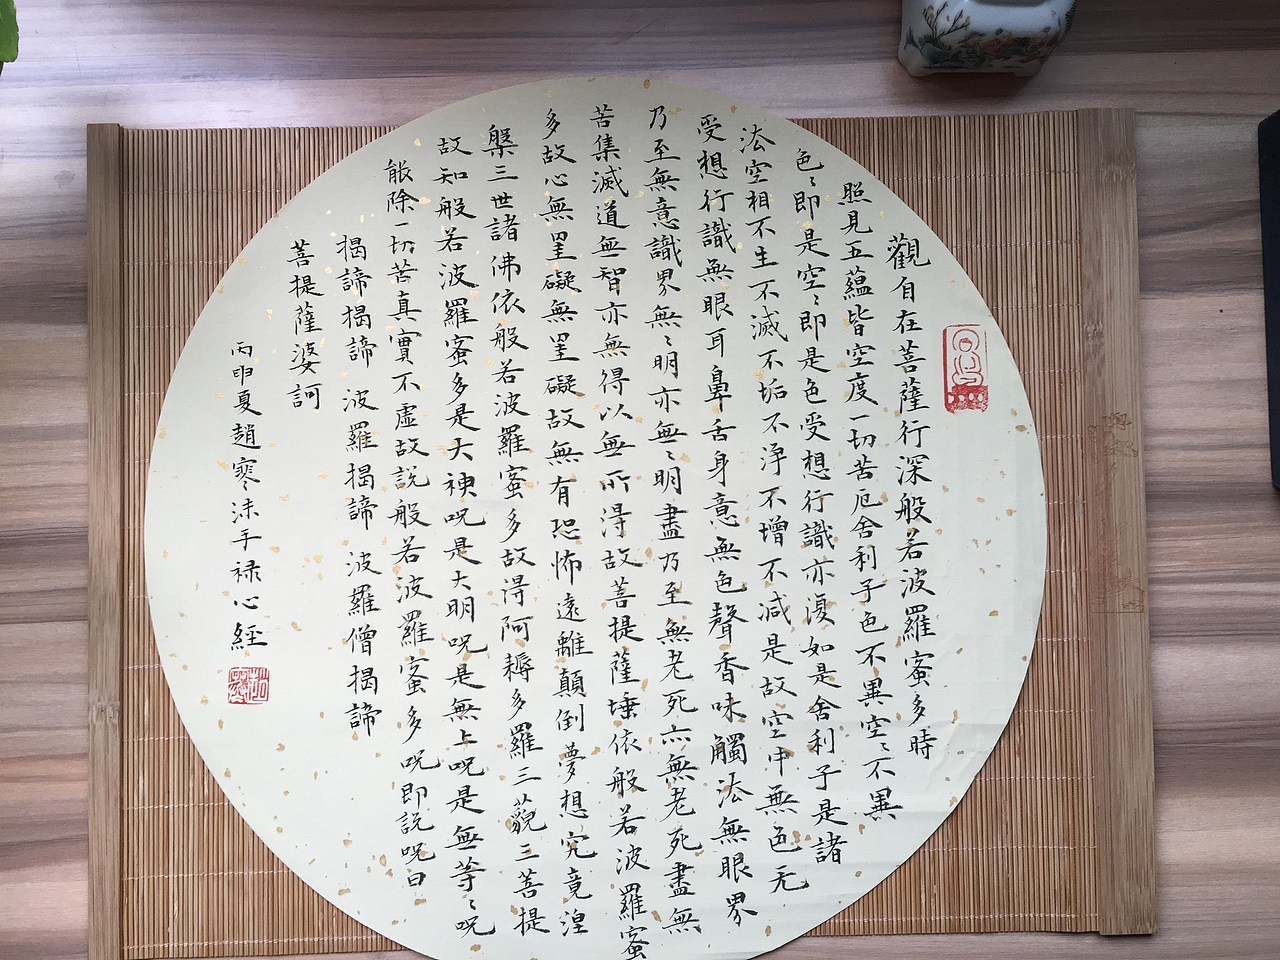 觀自在菩薩行深般若波羅蜜多時
照見五蘊皆空度一切苦厄舍利子色不異空〻不異
色〻即是空〻即是色受想行識亦復如是舍利子是諸
法空相不生不滅不垢不淨不增不減是故空中無色无
受想行識無眼耳鼻舌身意無色聲香味觸法無眼界
乃至無意識界無〻明亦無〻明盡乃至無老死亦無老死盡無
苦集滅道無智亦無得以無所得故菩提薩埵依般若波羅蜜
多故心無罣礙無罣礙故無有恐怖遠離顛倒夢想究竟涅
槃三世諸佛依般若波羅蜜多故得阿耨多羅三藐三菩提
故知般若波羅蜜多是大神呪是大明呪是無上呪是無等〻呪
能除一切苦真實不虛故說般若波羅蜜多呪即說呪曰
揭諦揭諦 波羅揭諦 波羅僧揭諦
菩提薩婆訶
丙申夏趙寒沫手祿心經